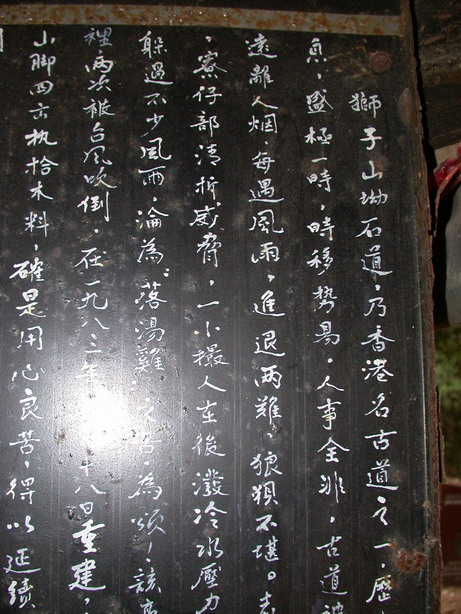 獅子山坳石道，乃香港名古道之一，歷
息，盛極一時，時移勢易，人事全非，古道
遠離人烟，每遇風雨，進退兩難，狼狽不堪。
，寮仔部清拆威脅，一小撮人在後潑冷水壓力
躲過不少風雨，淪為“落湯雞”之苦，為頌！該
裡兩次被台風吹倒，在一九八三年 十八日重建，
山脚四京执拾木料，確是用心良苦，得以延續